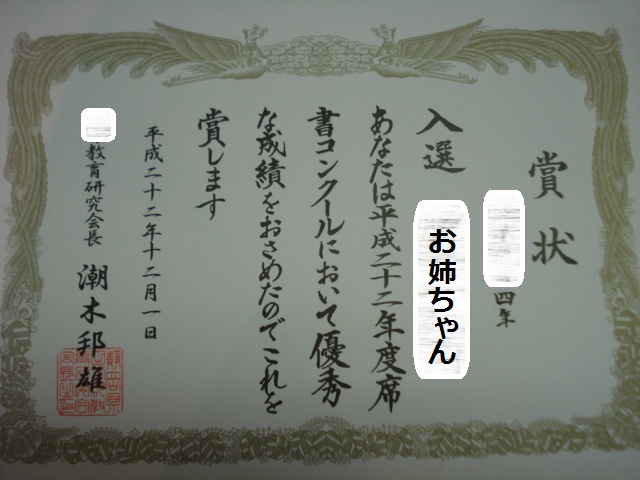 賞状
四年
入選
お姉ちゃん
あなたは平成二十二年度席
書コンクールにおいて優秀
な成績をおさめたのでこれを
賞します
平成二十二年十二月一日
教育研究会長 潮木邦雄